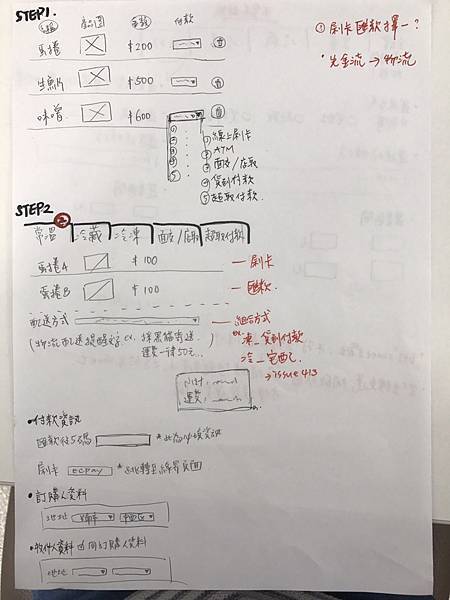 STEP1.
品圖 金額 付款
蛋捲 $200
生魚片 $500
味噌 $600
① 線上刷卡
② ATM
③ 面交/店取
④ 貨到付款
⑤ 超取付款
① 刷卡 匯款 擇一?
*先金流 → 物流
STEP2
②
常溫 冷藏 冷凍 面交/店取 超取付款
蛋捲A $100 — 刷卡
蛋捲B $100 — 匯款
配送方式 — 組合方式
(物流配送提醒文字 ex. 採黑貓寄送
運費一律50元...
ex. 凍_貨到付款
冷_宅配
→ issue 413
小計,
運費,
•付款資訊
匯款後5碼 *此為必填資訊
刷卡 ecpay *跳轉至綠界頁面
•訂購人資料
地址 縣市 鄉鎮區
•收件人資料 同訂購人資料
地址